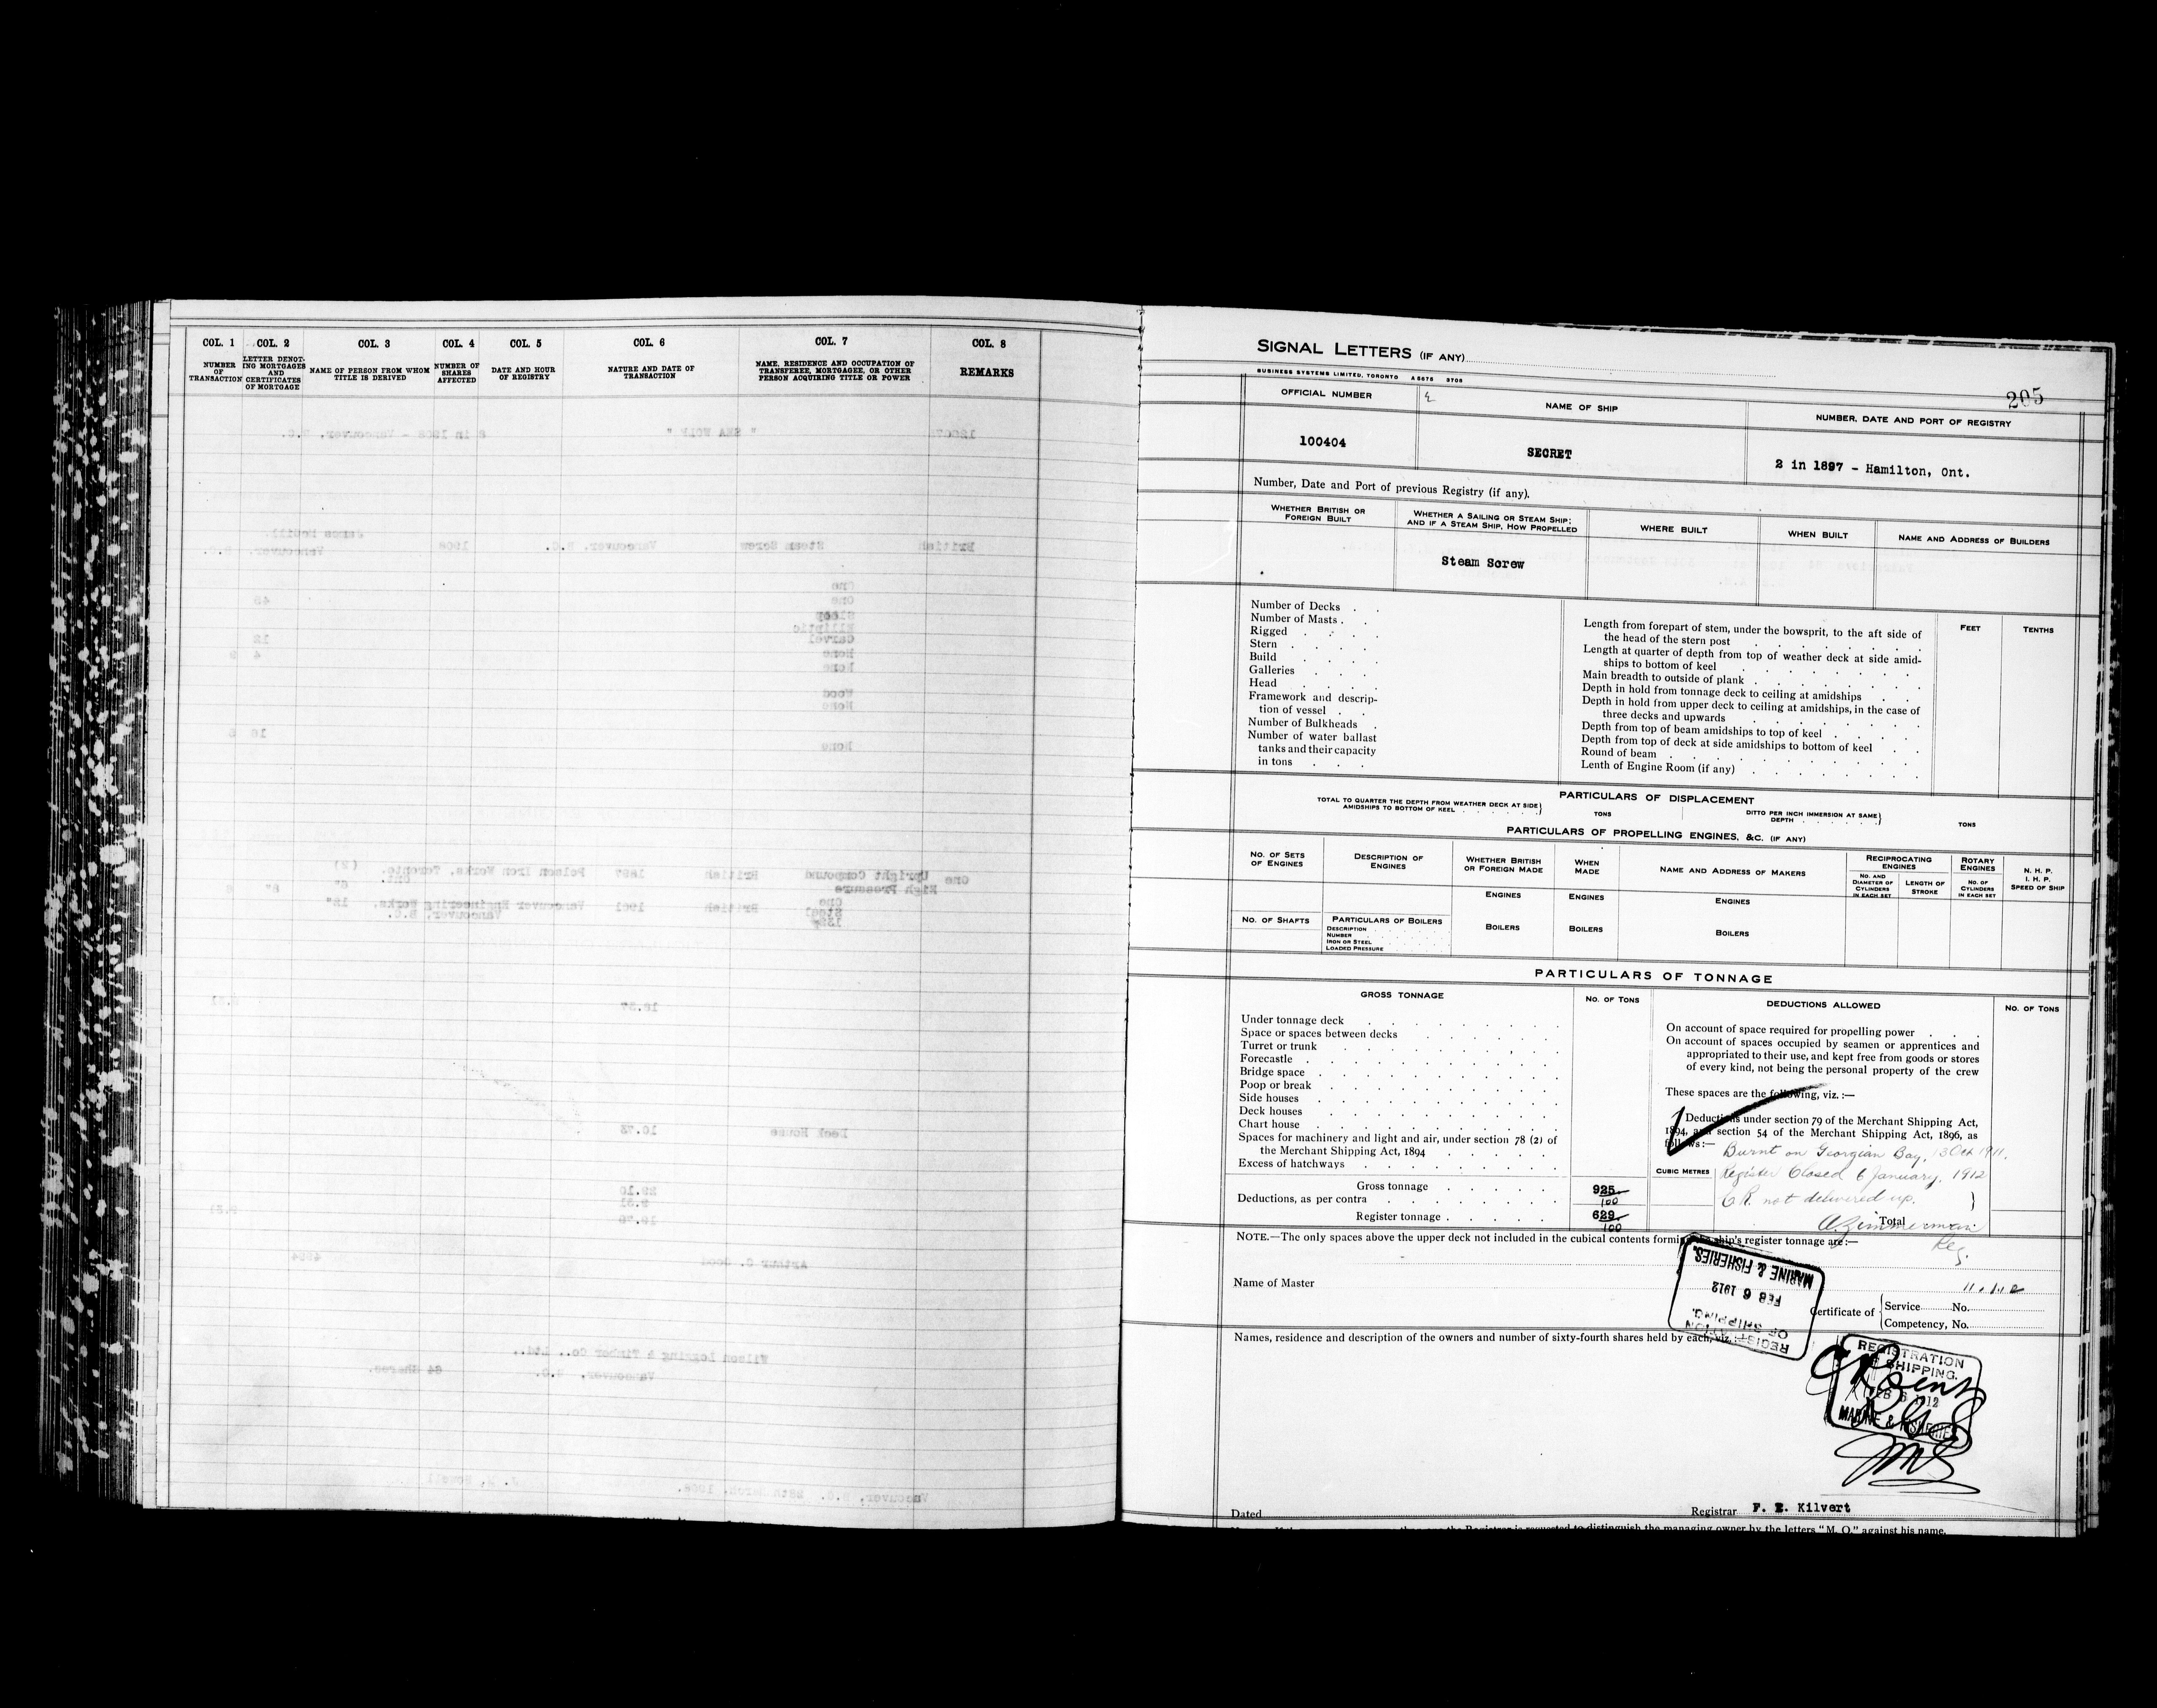 COL. 1
NUMBER
OF
TRANSACTION
COL. 2
LETTER DENOT-
ING MORTGAGES
AND
CERTIFICATES
OF MORTGAGE
COL. 3
NAME OF PERSON FROM WHOM
TITLE IS DERIVED
COL. 4
NUMBER OF
SHARES
AFFECTED
COL. 5
DATE AND HOUR
OF REGISTRY
COL. 6
NATURE AND DATE OF
TRANSACTION
COL. 7
NAME, RESIDENCE AND OCCUPATION OF
TRANSFEREE, MORTGAGEE, OR OTHER
PERSON ACQUIRING TITLE OR POWER
COL. 8
REMARKS
SIGNAL LETTERS (IF ANY)
BUSINESS SYSTEMS LIMITED, TORONTO
205
OFFICIAL NUMBER
NAME OF SHIP
NUMBER, DATE AND PORT OF REGISTRY
100404
SECRET
2 in 1897 - Hamilton, Ont.
Number, Date and Port of previous Registry (if any).
WHETHER BRITISH OR
FOREIGN BUILT
WHETHER A SAILING OR STEAM SHIP;
AND IF A STEAM SHIP, HOW PROPELLED
WHERE BUILT
WHEN BUILT
NAME AND ADDRESS OF BUILDERS
Steam Screw
Number of Decks . .
Number of Masts . .
Rigged . . . .
Stern . . . . .
Build . . . .
Galleries . . .
Head . . . .
Framework and descrip-
tion of vessel . .
Number of Bulkheads .
Number of water ballast
tanks and their capacity
in tons . . .
FEET
TENTHS
Length from forepart of stem, under the bowsprit, to the aft side of
the head of the stern post
Length at quarter of depth from top of weather deck at side amid-
ships to bottom of keel
Main breadth to outside of plank
Depth in hold from tonnage deck to ceiling at amidships
Depth in hold from upper deck to ceiling at amidships, in the case of
three decks and upwards
Depth from top of beam amidships to top of keel
Depth from top of deck at side amidships to bottom of keel
Round of beam
Lenth of Engine Room (if any)
PARTICULARS OF DISPLACEMENT
TOTAL TO QUARTER THE DEPTH FROM WEATHER DECK AT SIDE
AMIDSHIPS TO BOTTOM OF KEEL
TONS
DITTO PER INCH IMMERSION AT SAME
DEPTH
TONS
PARTICULARS OF PROPELLING ENGINES, &C. (IF ANY)
NO. OF SETS
OF ENGINES
DESCRIPTION OF
ENGINES
WHETHER BRITISH
OR FOREIGN MADE
WHEN
MADE
NAME AND ADDRESS OF MAKERS
RECIPROCATING
ENGINES
NO. AND
DIAMETER OF
CYLINDERS
IN EACH SET
LENGTH OF
STROKE
ROTARY
ENGINES
NO. OF
CYLINDERS
IN EACH SET
N. H. P.
I. H. P.
SPEED OF SHIP
ENGINES
ENGINES
ENGINES
NO. OF SHAFTS
PARTICULARS OF BOILERS
DESCRIPTION
NUMBER
IRON OR STEEL
LOADED PRESSURE
BOILERS
BOILERS
BOILERS
PARTICULARS OF TONNAGE
GROSS TONNAGE
NO. OF TONS
DEDUCTIONS ALLOWED
NO. OF TONS
Under tonnage deck
Space or spaces between decks
Turret or trunk
Forecastle
Bridge space
Poop or break
Side houses
Deck houses
Chart house
Spaces for machinery and light and air, under section 78 (2) of
the Merchant Shipping Act, 1894
Excess of hatchways
Gross tonnage
925
100
Deductions, as per contra
Register tonnage
629
100
On account of space required for propelling power
On account of spaces occupied by seamen or apprentices and
appropriated to their use, and kept free from goods or stores
of every kind, not being the personal property of the crew
These spaces are the following, viz. :—
Deductions under section 79 of the Merchant Shipping Act,
1894, and section 54 of the Merchant Shipping Act, 1896, as
follows:—
Burnt on Georgian Bay, 13 Oct 1911.
CUBIC METRES
Register Closed 6 January, 1912
C R not delivered up.
Total
A Zimmerman
Reg.
NOTE.—The only spaces above the upper deck not included in the cubical contents forming the ship's register tonnage are:—
Name of Master
Certificate of
Service No.
Competency, No.
REGISTRATION
OF SHIPPING.
FEB 6 1912
MARINE & FISHERIES.
Names, residence and description of the owners and number of sixty-fourth shares held by each, viz.:
REGISTRATION
OF SHIPPING.
FEB 6 1912
MARINE & FISHERIES
Dated
Registrar F. E. Kilvert
the Registrar is requested to distinguish the managing owner by the letters "M. O." against his name.